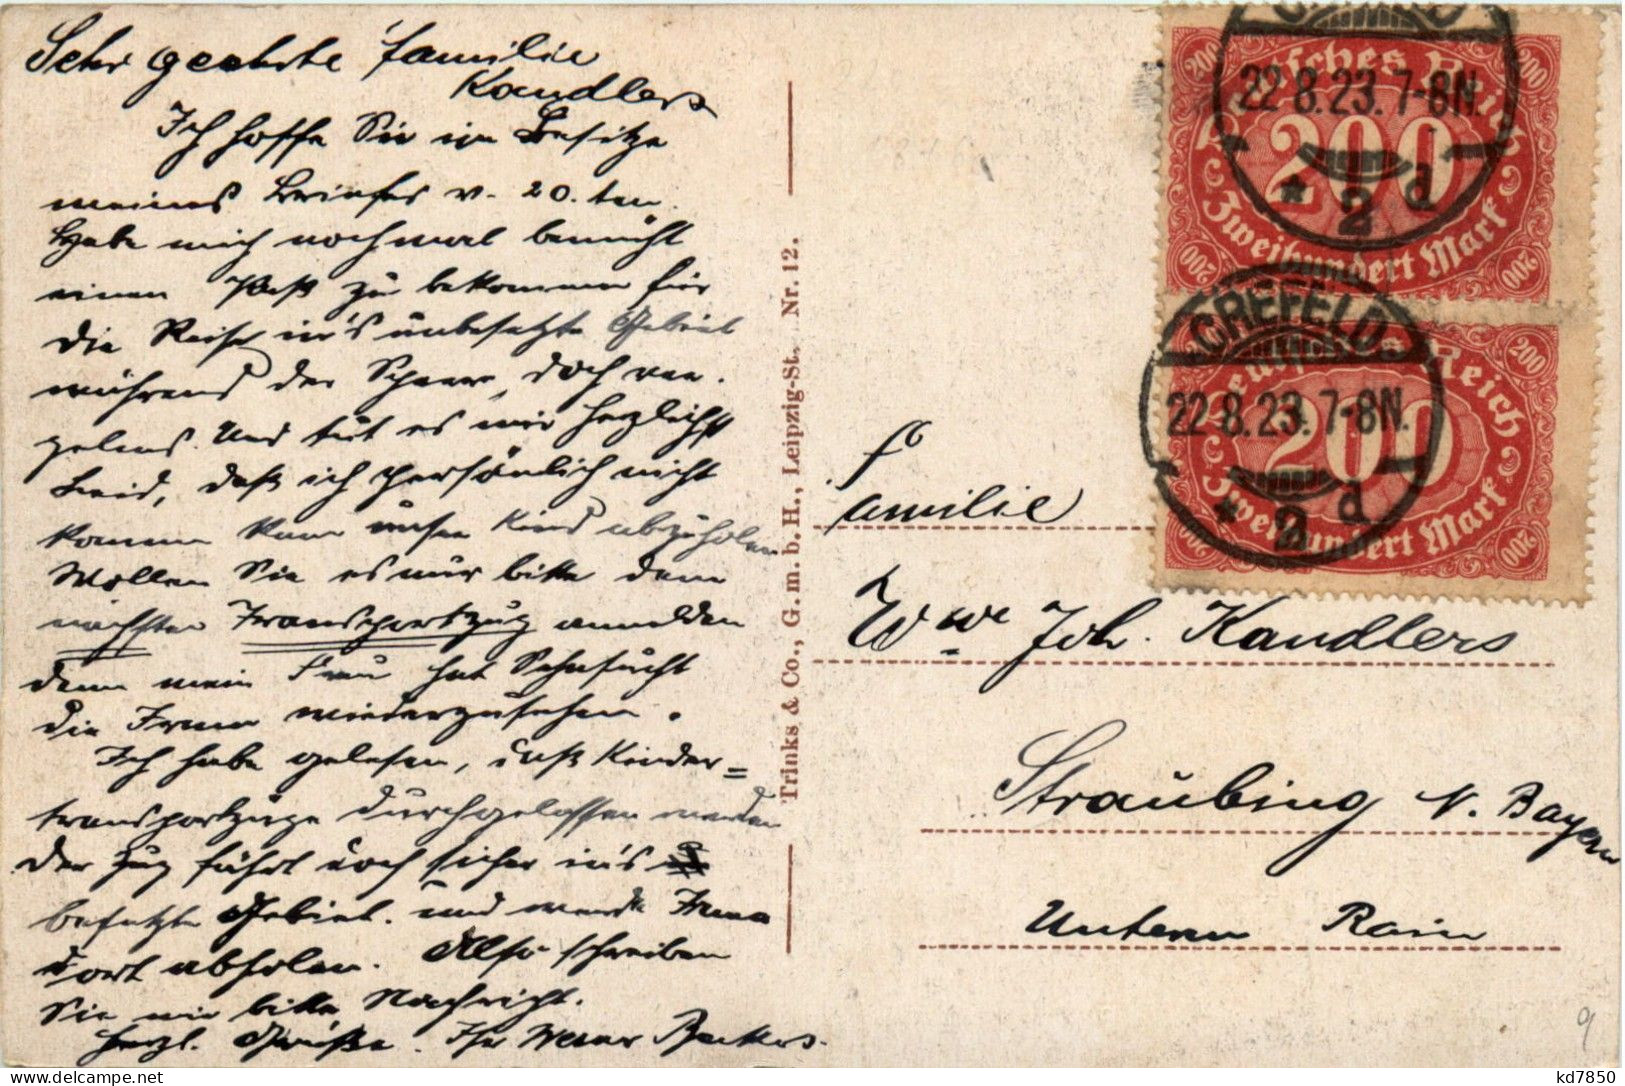 Sehr geehrte Familie
Kandlers
Ich hoffe Sie im Besitze
meines Briefes v. 20. ten.
Habe mich nochmal bemüht
einen Paß zu bekommen für
die Reise in's unbesetzte Gebiet
während der Sperre, doch ver-
gebens. Und tut es mir herzlichst
Leid, daß ich persönlich nicht
kommen kann unser Kind abzuholen
Wollen Sie es nur bitte dem
nächsten Transportzug anmelden
denn mein Frau hat Sehnsucht
die Irma wiederzusehen.
Ich habe gelesen, daß Kinder=
transportzüge durchgelassen werden
der Zug führt doch sicher in's
besetzte Gebiet. und werde Irma
dort abholen. Also schreiben
Sie mir bitte Nachricht.
Herzl. Grüße. Ihr Werner Beckers.
Trinks & Co., G. m. b. H., Leipzig-St., Nr. 12.
200 Deutsches Reich 200
22.8.23.7-8N.
200
* 2 d
200 Zweihundert Mark 200
CREFELD
Deutsches Reich 200
22.8.23.7-8N.
200
* 2 d
200 Zweihundert Mark 200
Familie
Wwe Joh. Kandlers
Straubing N. Bayern
Unterm Rain
9
kd7850